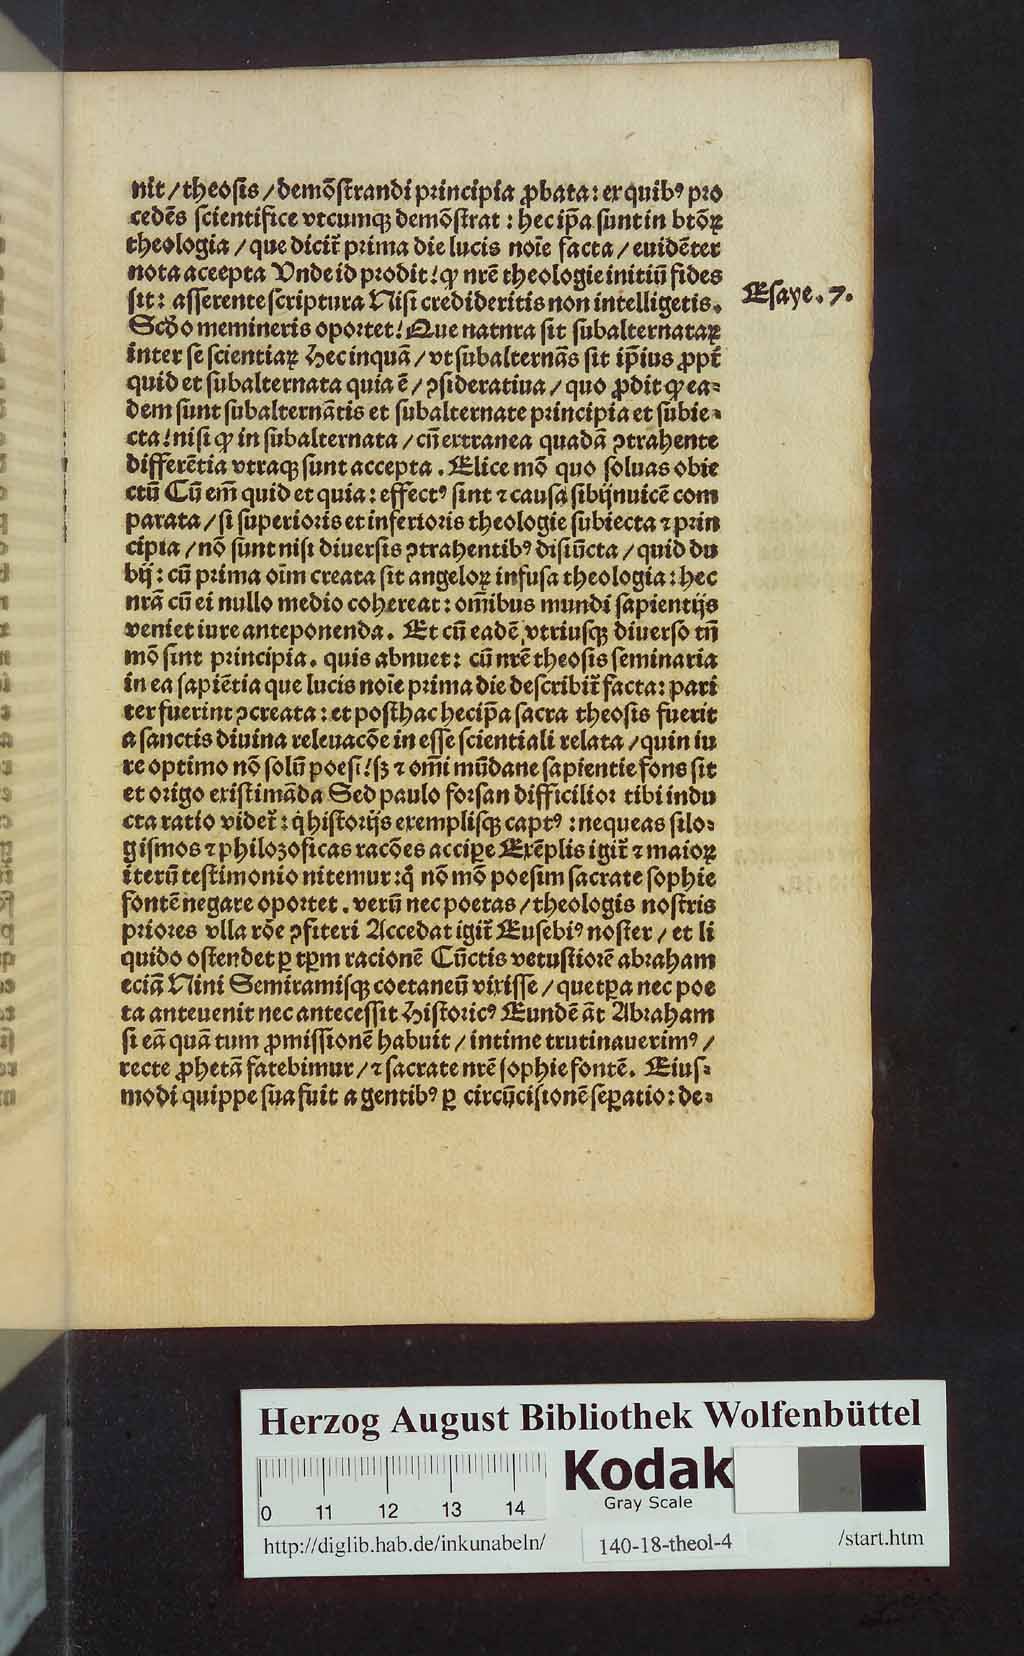 nit / theosis / demõstrandi principia ꝓbata: ex quibꝰ pro
cedẽs scientifice vtcumqꝫ demõstrat : hec ip̃a sunt in btõꝝ
theologia / que dicit̃ prima die lucis noĩe facta / euidẽter
nota accepta Vnde id prodit! ꝙ nrẽ theologie initiũ fides
sit: asserente scriptura Nisi credideritis non intelligetis.
Esaye. 7.
Scd̃o memineris oportet! Que natnra sit subalternataꝝ
inter se scientiaꝝ Hec inquã / vt subalternãs sit ip̃ius ꝓpt̃
quid et subalternata quia ẽ / ꝯsideratiua / quo ꝓdit ꝙ ea-
dem sunt subalternãtis et subalternate principia et subie-
cta! nisi ꝙ in subalternata / cũ extranea quadã ꝯtrahente
differẽtia vtraqꝫ sunt accepta . Elice mõ quo soluas obie
ctũ Cũ em̃ quid et quia: effectꝰ sint ⁊ causa sibijnuicẽ com
parata / si superioris et inferioris theologie subiecta ⁊ prin
cipia / nõ sunt nisi diuersis ꝯtrahentibꝰ disiũcta / quid du
bij: cũ prima oĩm creata sit angeloꝝ infusa theologia: hec
nrã cũ ei nullo medio cohereat: om̃ibus mundi sapientijs
veniet iure anteponenda . Et cũ eadẽ vtriusqꝫ diuerso tñ
mõ sint principia . quis abnuet: cũ nrẽ theosis seminaria
in ea sapiẽtia que lucis noĩe prima die describit̃ facta: pari
ter fuerint ꝯcreata: et posthac hec ip̃a sacra theosis fuerit
a sanctis diuina releuacõe in esse scientiali relata / quin iu
re optimo nõ solũ poesi! sꝫ ⁊ om̃i mũdane sapientie fons sit
et origo existimãda Sed paulo forsan difficilior tibi indu
cta ratio videt̃: q̃ historijs exemplisqꝫ captꝰ : nequeas silo-
gismos ⁊ philozoficas racões accipe Exẽplis igit̃ ⁊ maioꝝ
iterũ testimonio nitemur: q̃ nõ mõ poesim sacrate sophie
fontẽ negare oportet . verũ nec poetas / theologis nostris
priores vlla rõe ꝯfiteri Accedat igit̃ Eusebiꝰ noster / et li
quido ostendet ꝑ tꝑm racionẽ Cũctis vetustiorẽ abraham
eciã Nini Semiramisqꝫ coetaneũ vixisse / que tꝑa nec poe
ta anteuenit nec antecessit Historicꝰ Eundẽ ãt Abraham
si eã quã tum ꝓmissionẽ habuit / intime trutinauerimꝰ /
recte ꝓhetã fatebimur / ⁊ sacrate nrẽ sophie fontẽ. Eius-
modi quippe sua fuit a gentibꝰ ꝑ circũcisionẽ seꝑatio: de-
Herzog August Bibliothek Wolfenbüttel
0 11 12 13 14
Kodak
Gray Scale
http://diglib.hab.de/inkunabeln/ 140-18-theol-4 /start.htm